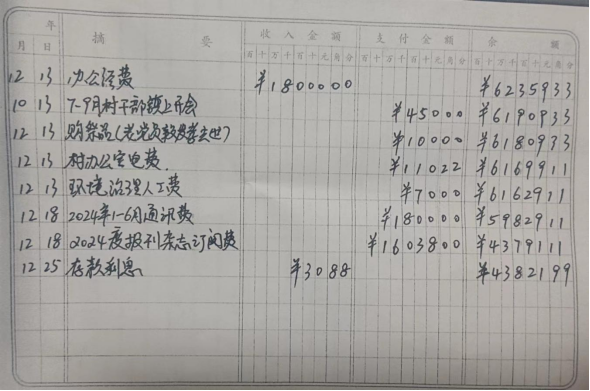 年 摘 要 收入金额 支付金额 余 额
月 日 百十万千百十元角分 百十万千百十元角分 百十万千百十元角分
12 13 办公经费 ¥1800000 ¥6235933
10 13 7-9月村干部镇上开会 ¥45000 ¥6190933
12 13 购祭品(老党员教师李去世) ¥10000 ¥6180933
12 13 村办公室电费 ¥11022 ¥6169911
12 13 环境治理人工费 ¥7000 ¥6162911
12 18 2024年1-6月通讯费 ¥180000 ¥5982911
12 18 2024度报刊杂志订阅费 ¥1603800 ¥4379111
12 25 存款利息 ¥3088 ¥4382199